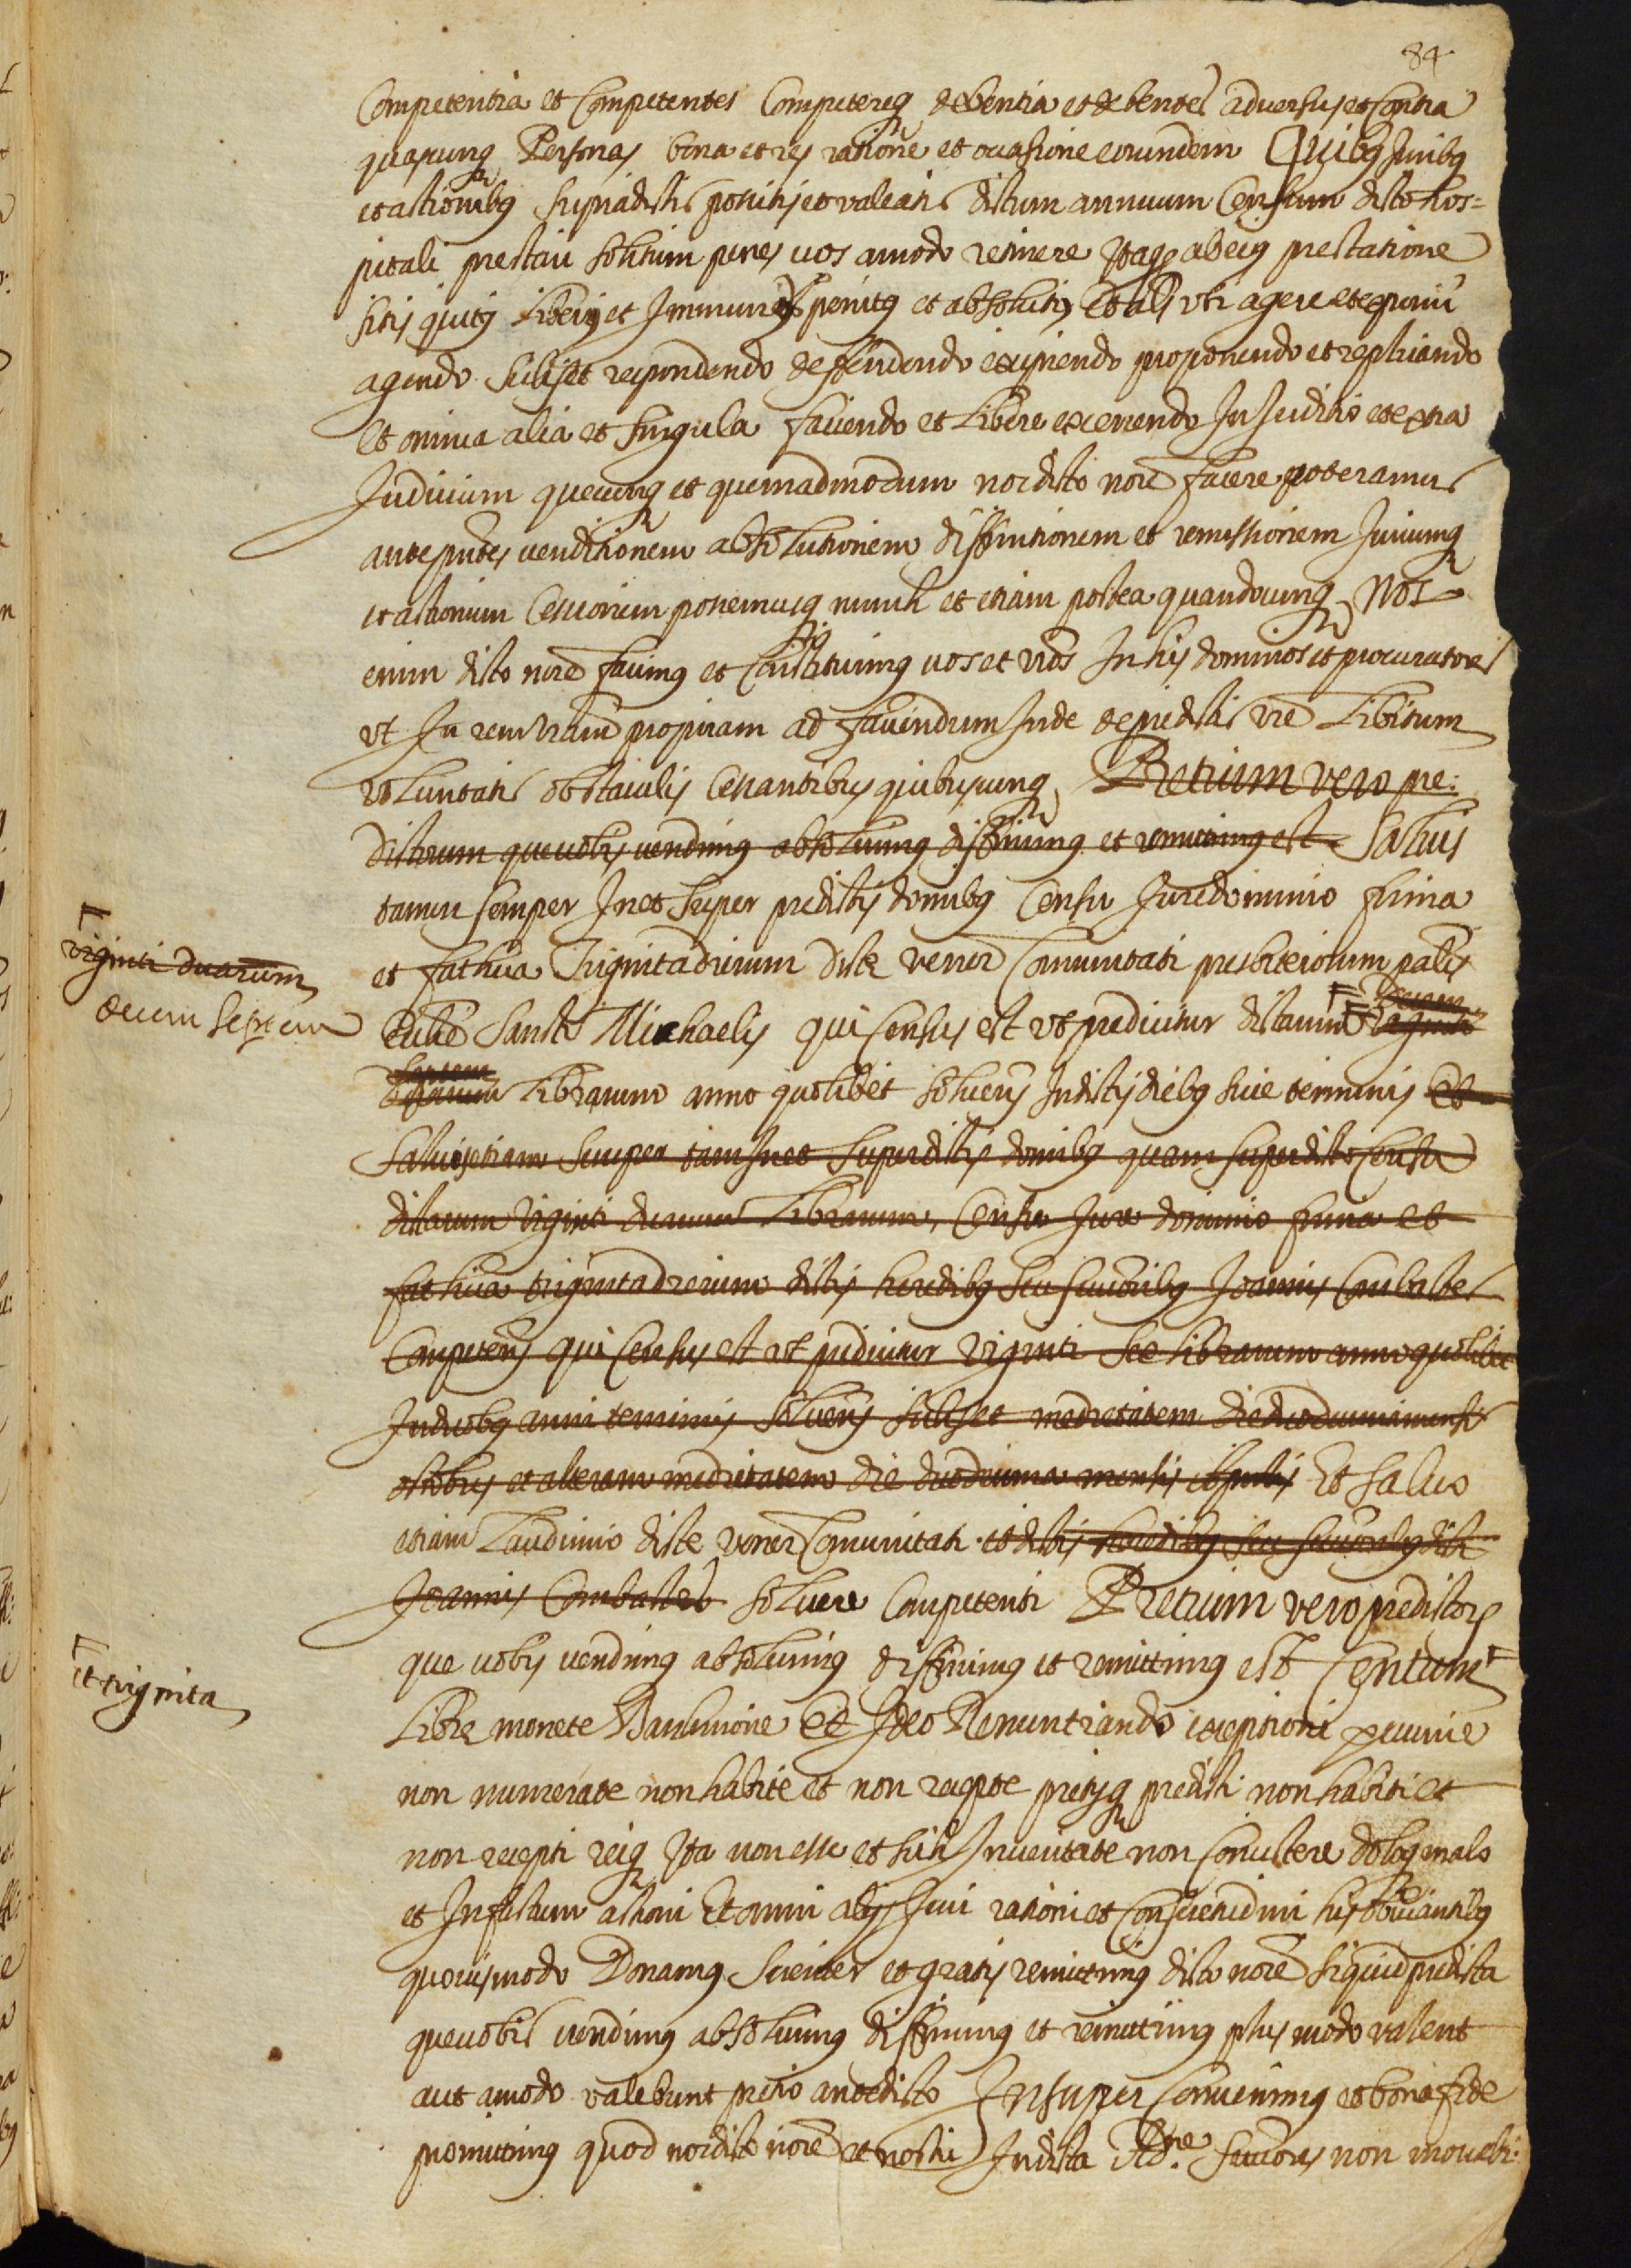 84
Competentia et Competentes Competereq debentia et debentes adversus et Contra
quascunq Personas bona et res ratione et occasione eorundem Quibq Juribq
et actionibq supradictis possitis et valeatis dictum annuum Censum dicto hos=
pitali prestari solitum penes vos amodo retinere Itaq ab eiq prestatione
sitis quitij Liberi et Immunes penitq et absoluti Et alij uti agere et experiri
agendo Scilicet respondendo deffendendo excipiendo proponendo et replicando
et omnia alia et singula faciendo et Libere exercendo In Juditio et extra
Juditium quecunq et quemadmodum nos dicto noīe facere poteramus
ante pntes venditionem absolutionem diffinitionem et remissionem Juriumq
et actionum Cessionem possemusq nunc et etiam postea quandocunq Nos
enim dicto noīe facimq et Constituimq vos et vros In his dominos et procuratores
ut In rem vram propriam ad faciendum Inde de predictis vre Libitum
voluntatis obstaculis Cessantibus quibuscunq Pretium vero pre:
dictorum que vobis vendimq absoluimq diffinimq et remittimq est Salvis
tamen semper In et super predictis domibq Censu Jure dominio firma
et fathica Trigintadierum dicte vener Comunitati presbiterorum
viginti duarum
decem septem
Sancti Michaelis qui Census est ut predicitur dictarum viginti
decem
septem
duarum Librarum anno quolibet solvens In dictis diebq sive terminis Et
Salvis etiam Semper tam In et Super dictis domibq quam super dicto Censu
dictarum Viginti duarum Librarum, Censu Jure dominio firma et
fathica trigintadierum dictis heredibq seu successoribq Joannis Combaltes
Competens qui Census est ut predicitur Viginti sex librarum anno quolibet
In duobq anni terminis Solvens scilicet medietatem die duodecima mensis
octobris et alteram medietatem die duodecima mensis Et Salvo
etiam Laudimio dicte vener Comunitati et dictis heredibq seu successoribq dicti
Joannis Combaltes Solvere Competenti Pretium vero predictorum
que vobis vendimq absoluimq diffinimq et remittimq est Centum
et triginta
Libre monete Barchinone Et Ideo Renuntiando exceptioni pecunie
non numerate non habite et non recepte pretijq predicti non habiti et
non recepti reiq Ita non esse et sic In veritate non Consistere doloq malo
et In factum actioni Et omni alij Juri rationi et Consuetudini his obviantibq
quovismodo Donamq Scienter et gratis remittimq dicto noīe siquid predicta
que vobis vendimq absoluimq diffinimq et remittimq plus modo valent
aut amodo valebunt pretio antedicto Insuper Convenimq et bona fide
promittimq quod nos dicto noīe et nostri In dicta Adne successores non